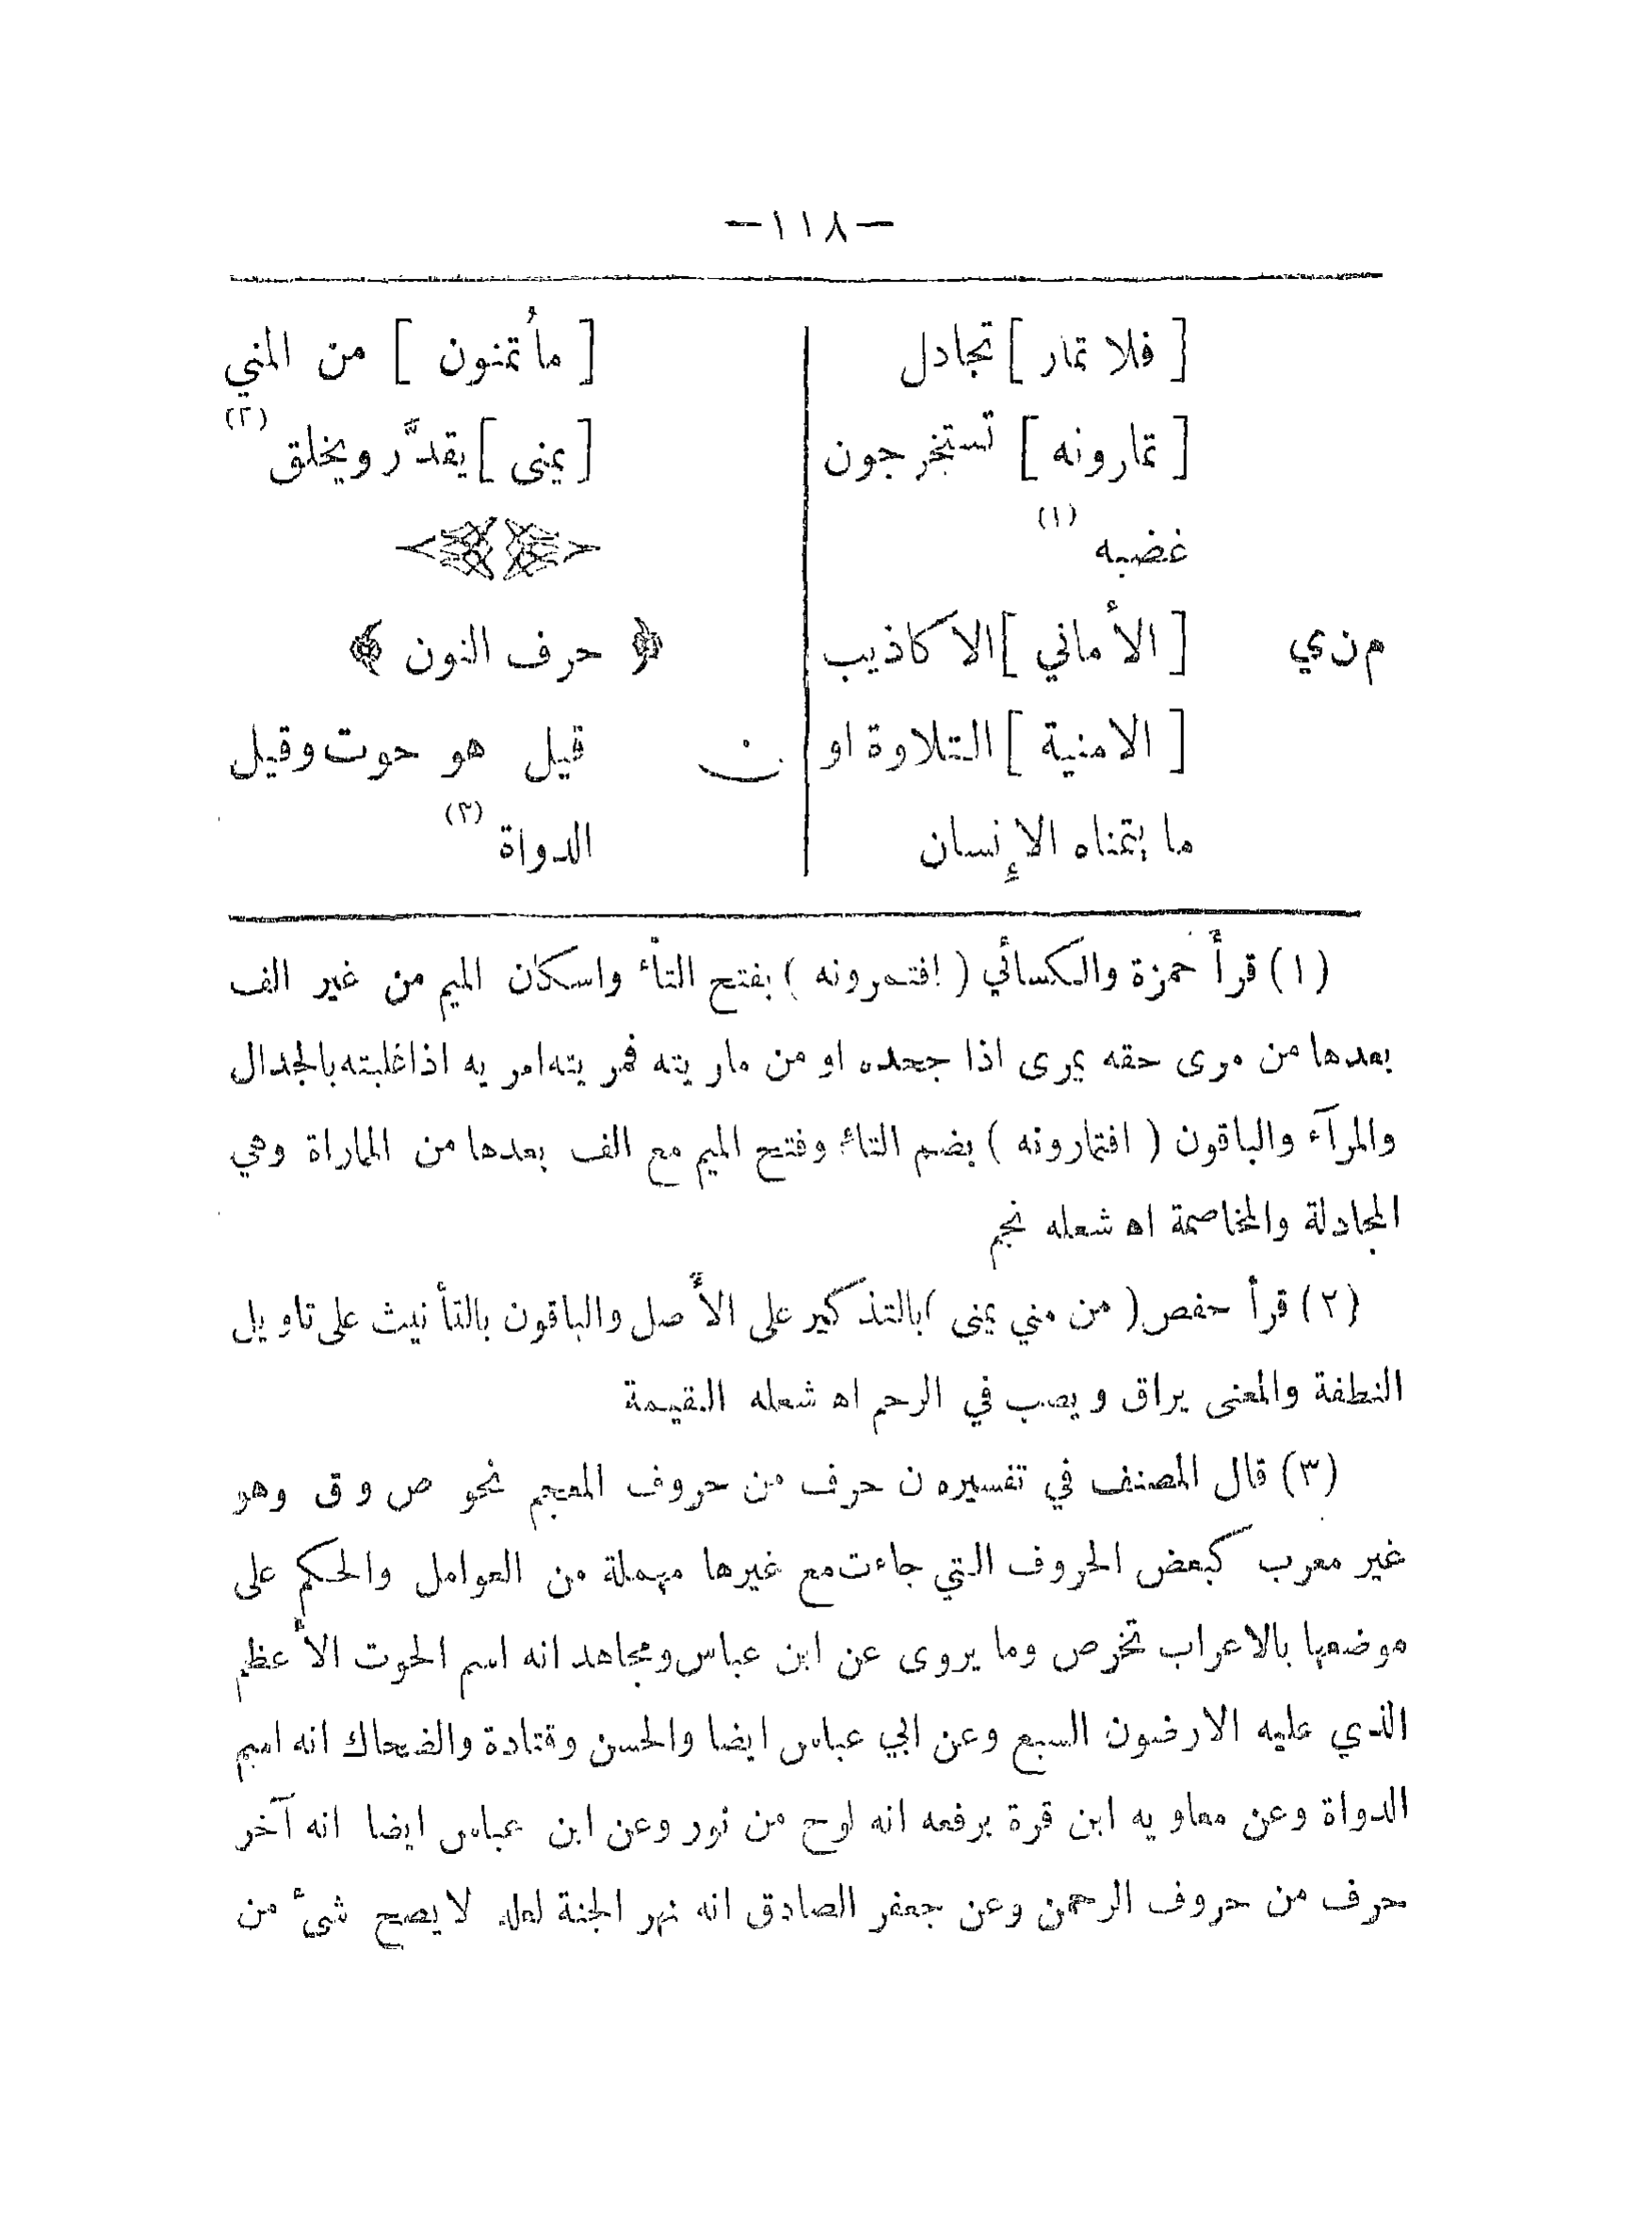 —١١٨—
[ فلا تمار ] تجادل
[ تمارونه ] تستخرجون
غضبه (١)
م ن ي [ الأماني ] الاكاذيب
[ الامنية ] التلاوة او
ما يتمناه الإنسان
[ مأتمنون ] من المني
[ يمنى ] يقدَّر ويخلق (٢)
﴿ حرف النون ﴾
ن قيل هو حوت وقيل
الدواة (٣)
(١) قرأ حمزة والكسائي ( افتمرونه ) بفتح التاء واسكان الميم من غير الف
بعدها من مرى حقه يمرى اذا جحده او من ماريته فمريته امريه اذا غلبته بالجدال
والمرآء والباقون ( افتمارونه ) بضم التاء وفتح الميم مع الف بعدها من المماراة وهي
المجادلة والمخاصمة اه شعله نجم
(٢) قرأ حفص ( من مني يمنى ) بالتذكير على الأصل والباقون بالتأنيث على تاويل
النطفة والمعنى يراق ويصب في الرحم اه شعله القيمة
(٣) قال المصنف في تفسيره ن حرف من حروف المعجم نحو ص و ق وهو
غير معرب كبعض الحروف التي جاءت مع غيرها مهملة من العوامل والحكم على
موضعها بالاعراب تخرص وما يروى عن ابن عباس ومجاهد انه اسم الحوت الأعظم
الذي عليه الارضون السبع وعن ابي عباس ايضا والحسن وقتادة والضحاك انه اسم
الدواة وعن معاويه ابن قرة يرفعه انه لوح من نور وعن ابن عباس ايضا انه آخر
حرف من حروف الرحمن وعن جعفر الصادق انه نهر الجنة لعله لا يصح شئ من